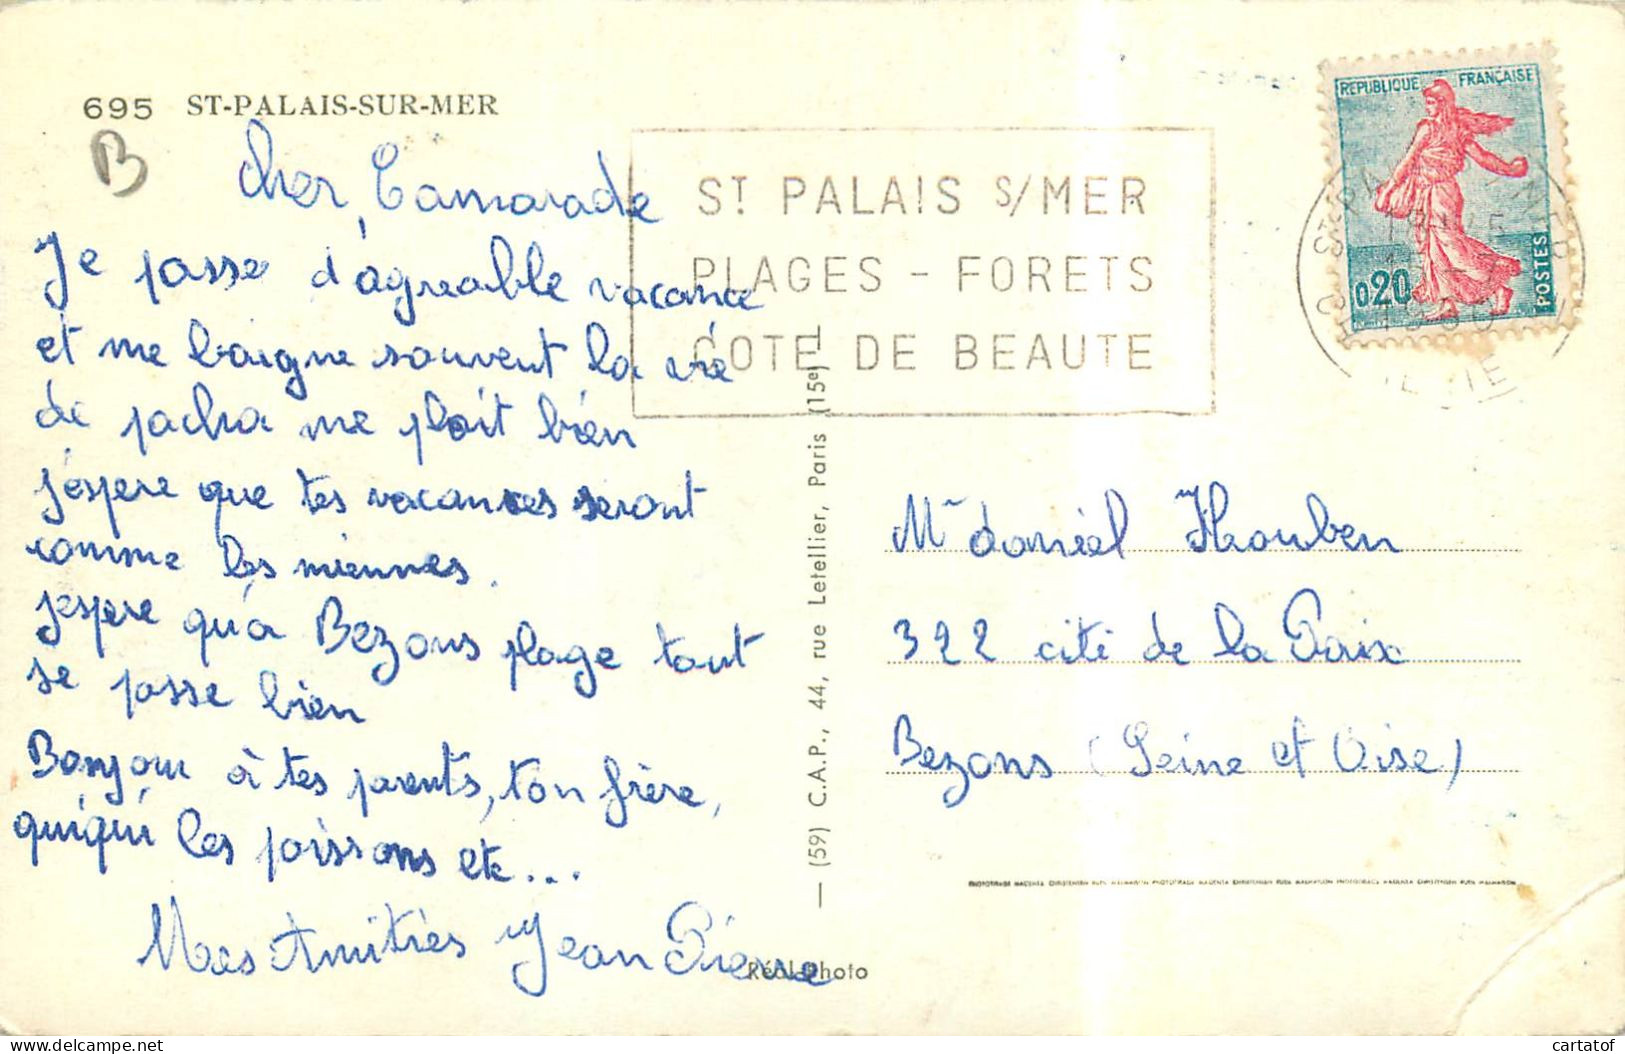 695 ST-PALAIS-SUR-MER
B
Cher Camarade
Je passe d'agreable vacance
et me baigne souvent la vie
de pacha me plait bien
j'espere que tes vacances seront
comme les miennes.
j'espere qu'a Bezons plage tout
se passe bien
Bonjour à tes parents, ton frère,
quiqui les poissons etc...
Mes Amitiès Jean Pierre
ST PALAIS S/MER
PLAGES - FORETS
COTE DE BEAUTE
REPUBLIQUE FRANÇAISE
0,20
POSTES
(59) C.A.P., 44, rue Letellier, Paris (15e)
Réal-Photo
Mr daniel
322 cité de la Paix
Bezons (Seine et Oise)
cartatof